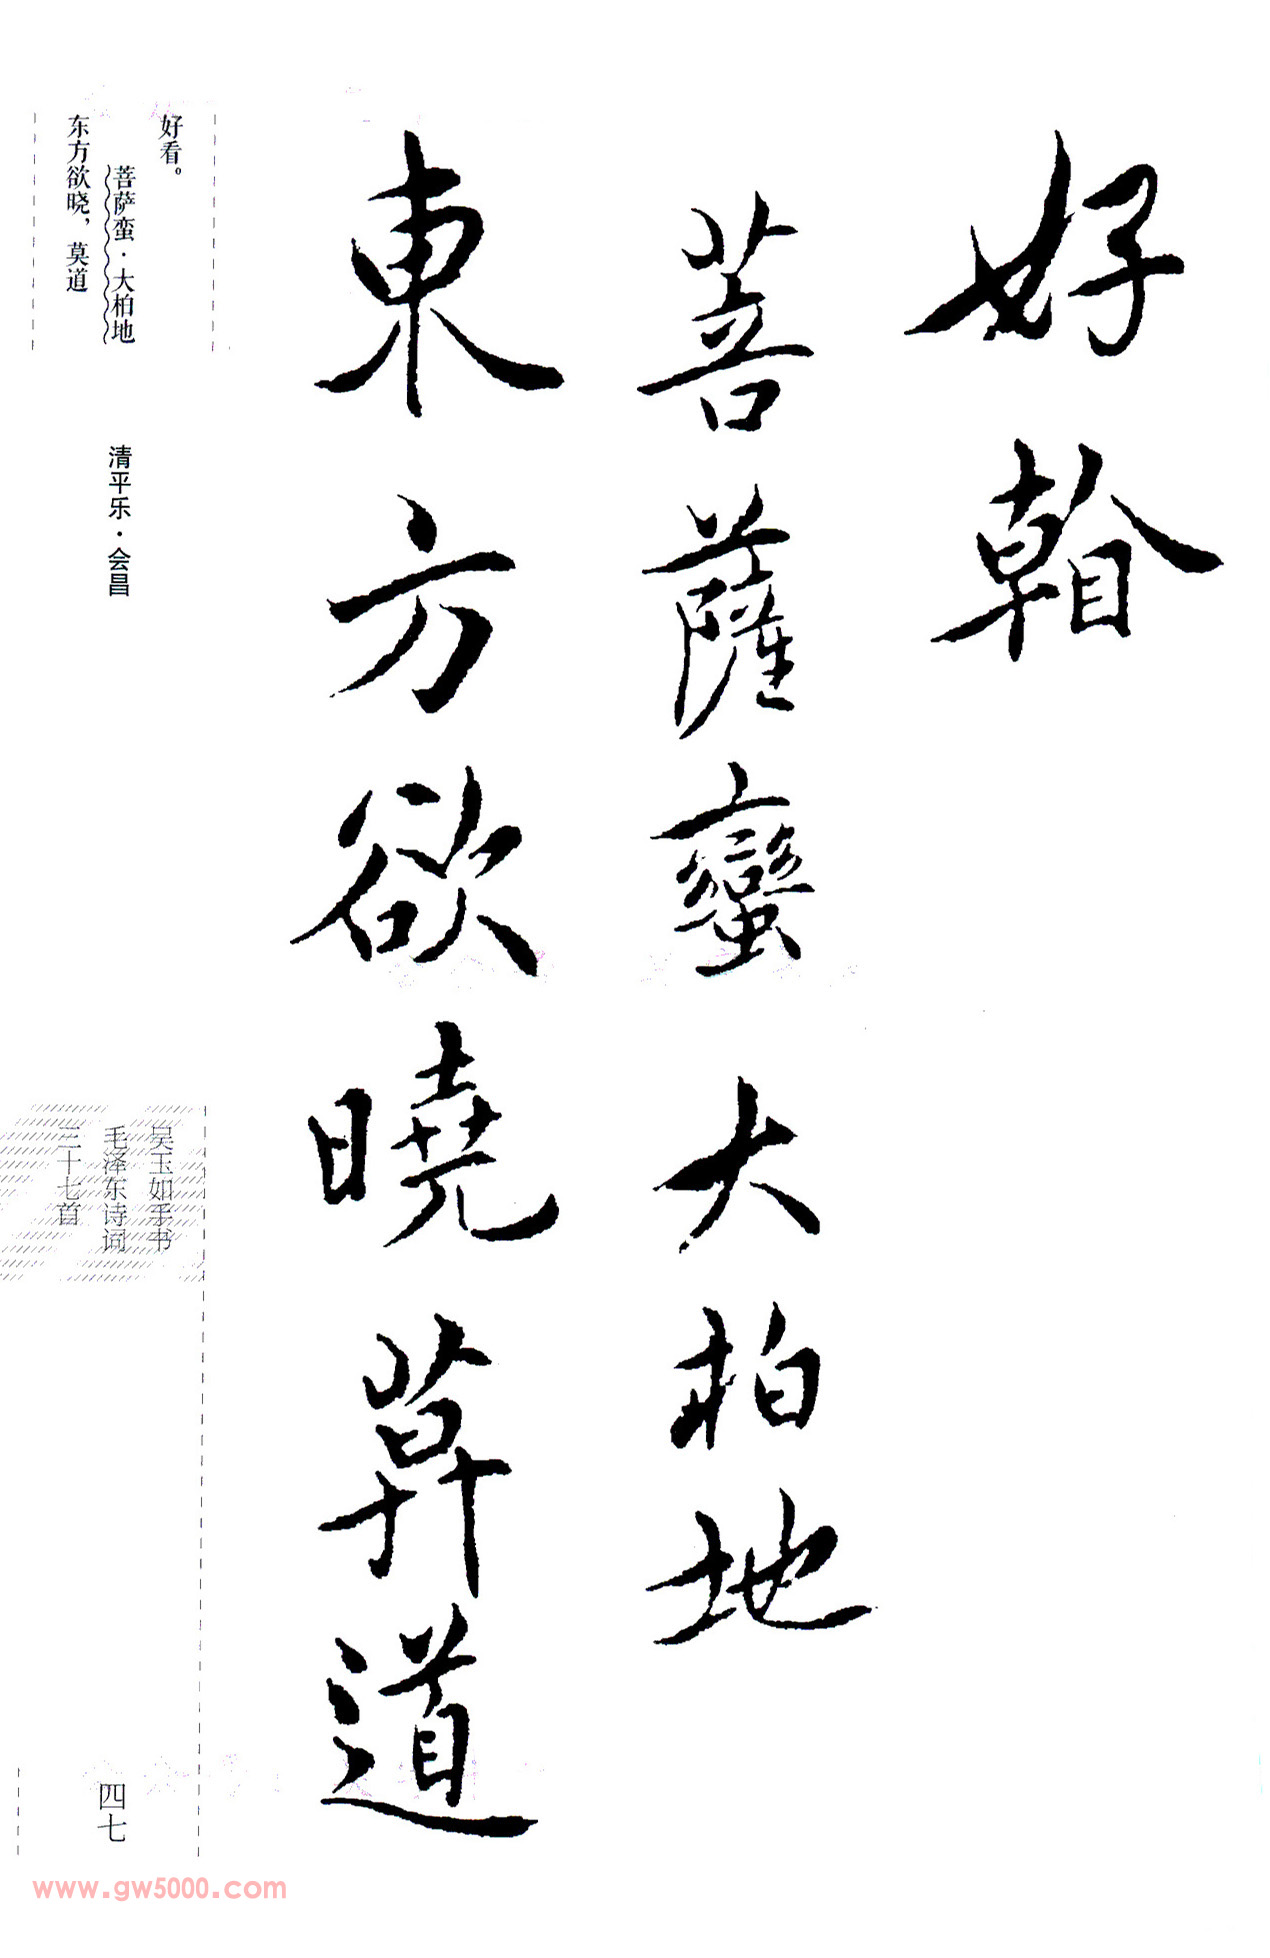 好看
菩薩蠻大柏地
東方欲曉莫道
好看。
菩萨蛮·大柏地
东方欲晓，莫道
清平乐·会昌
吴玉如手书
毛泽东诗词
三十七首
四七
www.gw5000.com